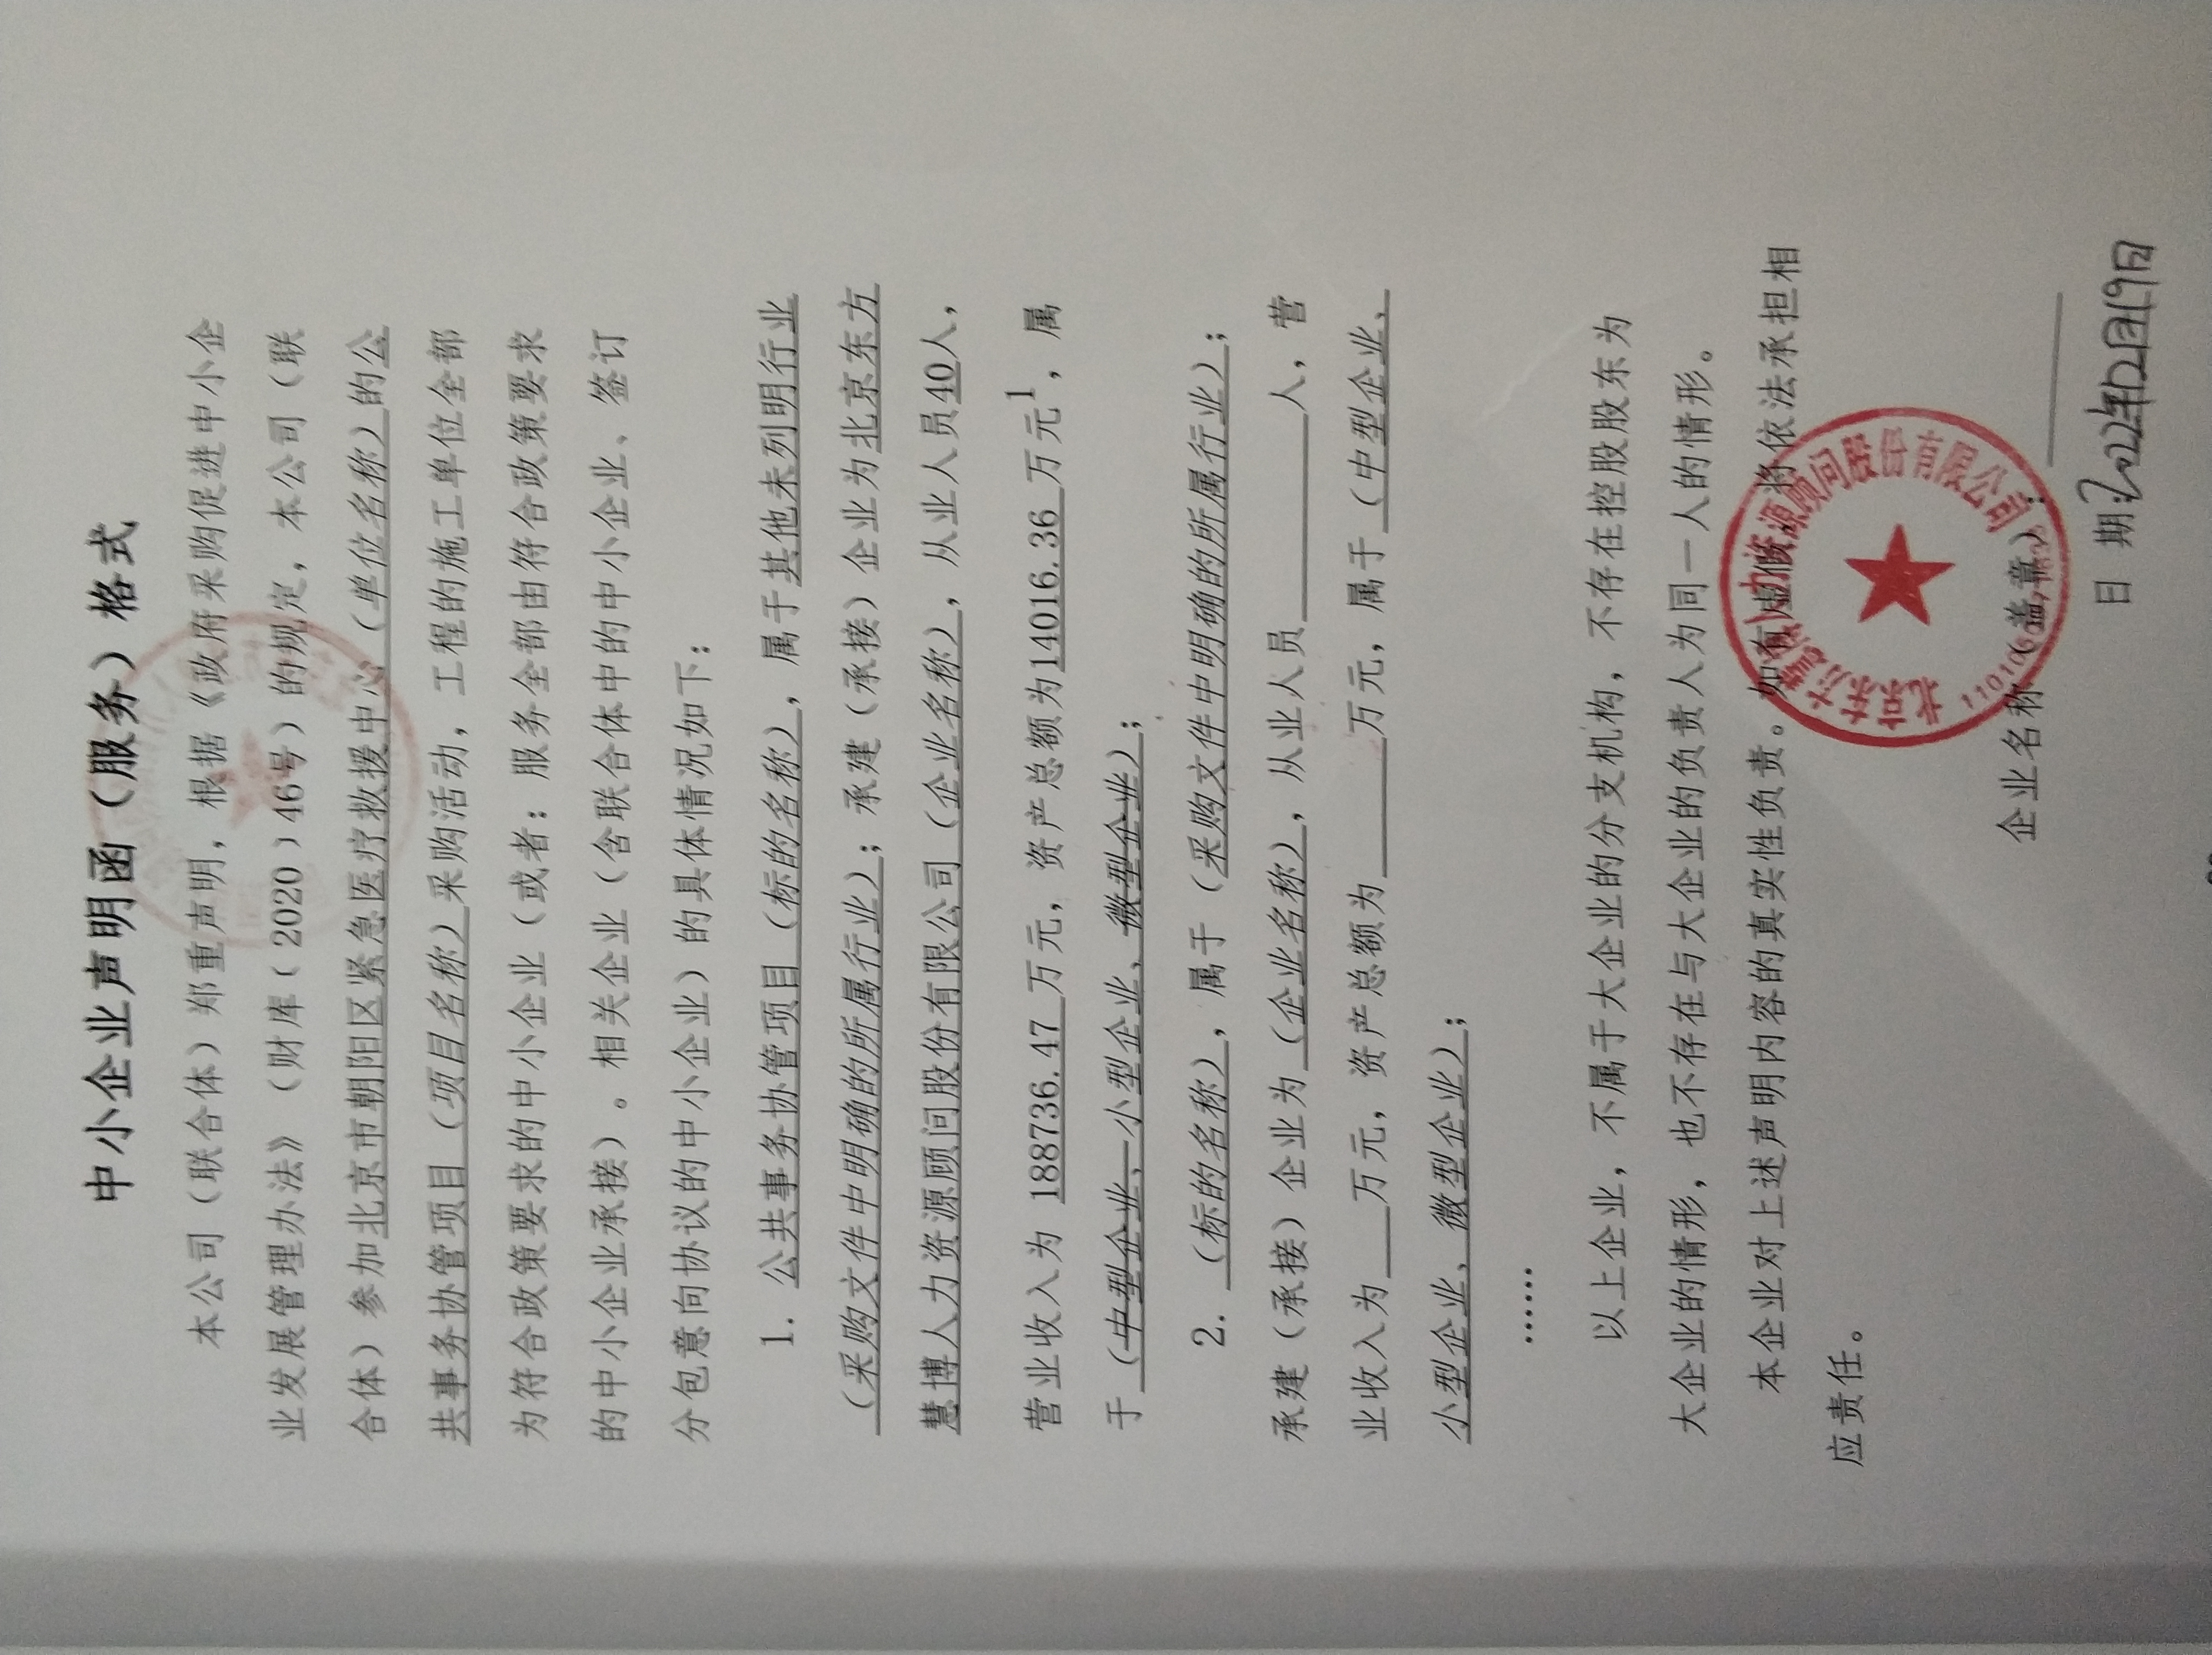 中小企业声明函（服务）格式
本公司（联合体）郑重声明，根据《政府采购促进中小企
业发展管理办法》（财库﹝2020﹞46号）的规定，本公司（联
合体）参加北京市朝阳区紧急医疗救援中心（单位名称）的公
共事务协管项目（项目名称）采购活动，工程的施工单位全部
为符合政策要求的中小企业（或者：服务全部由符合政策要求
的中小企业承接）。相关企业（含联合体中的中小企业、签订
分包意向协议的中小企业）的具体情况如下：
1. 公共事务协管项目（标的名称），属于其他未列明行业
（采购文件中明确的所属行业）；承建（承接）企业为北京东方
慧博人力资源顾问股份有限公司（企业名称），从业人员40人，
营业收入为 188736.47 万元，资产总额为14016.36 万元1，属
于（中型企业、小型企业、微型企业）；
2. （标的名称），属于（采购文件中明确的所属行业）；
承建（承接）企业为（企业名称），从业人员____人，营
业收入为____万元，资产总额为____万元，属于（中型企业、
小型企业、微型企业）；
……
以上企业，不属于大企业的分支机构，不存在控股股东为
大企业的情形，也不存在与大企业的负责人为同一人的情形。
本企业对上述声明内容的真实性负责。如有虚假，将依法承担相
应责任。
企业名称（盖章）：
北京东方慧博人力资源顾问股份有限公司
日 期：2022年12月19日